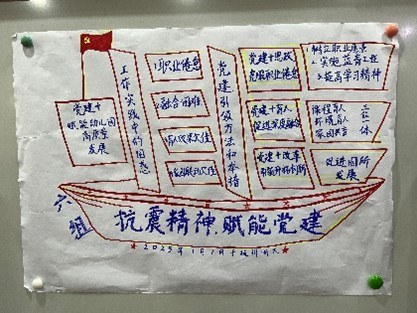 党建+
赋能幼儿园
高质量
发展
工作实践中的困惑
1.职业倦怠
2.融合困难
党建引领方法和举措
党建+思政
克服职业倦怠
党建+育人
促进深度融合
党建+改革
1.树立职业愿景
2.实施蓝青工程
3.提高学习精神
课程育人
环境育人
家园共育
三位一体
促进园所
发展
六组
抗震精神,赋能党建